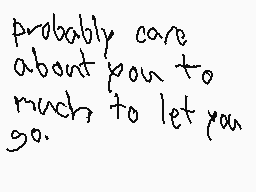 probably care
about you to
much to let you
go.